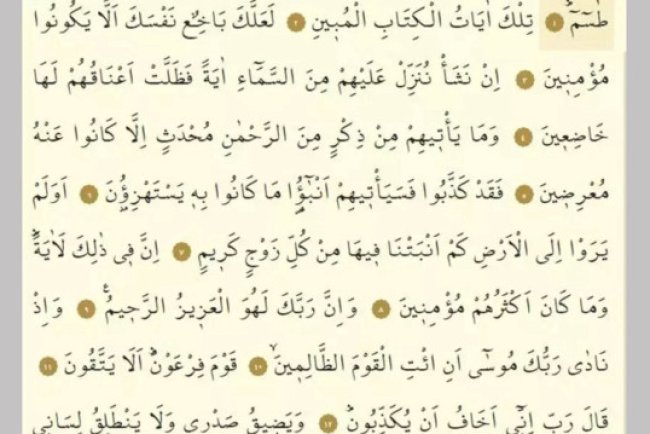 طٰسٓمٓ ﴿١﴾ تِلْكَ اٰيَاتُ الْكِتَابِ الْمُب۪ينِ ﴿٢﴾ لَعَلَّكَ بَاخِعٌ نَفْسَكَ اَلَّا يَكُونُوا
مُؤْمِن۪ينَ ﴿٣﴾ اِنْ نَشَأْ نُنَزِّلْ عَلَيْهِمْ مِنَ السَّمَٓاءِ اٰيَةً فَظَلَّتْ اَعْنَاقُهُمْ لَهَا
خَاضِع۪ينَ ﴿٤﴾ وَمَا يَأْت۪يهِمْ مِنْ ذِكْرٍ مِنَ الرَّحْمٰنِ مُحْدَثٍ اِلَّا كَانُوا عَنْهُ
مُعْرِض۪ينَ ﴿٥﴾ فَقَدْ كَذَّبُوا فَسَيَأْت۪يهِمْ اَنْبٰٓؤُ۬ا مَا كَانُوا بِه۪ يَسْتَهْزِؤُ۫نَ ﴿٦﴾ اَوَلَمْ
يَرَوْا اِلَى الْاَرْضِ كَمْ اَنْبَتْنَا ف۪يهَا مِنْ كُلِّ زَوْجٍ كَر۪يمٍ ﴿٧﴾ اِنَّ ف۪ي ذٰلِكَ لَاٰيَةًۜ
وَمَا كَانَ اَكْثَرُهُمْ مُؤْمِن۪ينَ ﴿٨﴾ وَاِنَّ رَبَّكَ لَهُوَ الْعَز۪يزُ الرَّح۪يمُ۟ ﴿٩﴾ وَاِذْ
نَادٰى رَبُّكَ مُوسٰٓى اَنِ ائْتِ الْقَوْمَ الظَّالِم۪ينَۙ ﴿١٠﴾ قَوْمَ فِرْعَوْنَۜ اَلَا يَتَّقُونَ ﴿١١﴾
قَالَ رَبِّ اِنّ۪ٓي اَخَافُ اَنْ يُكَذِّبُونِۜ ﴿١٢﴾ وَيَض۪يقُ صَدْر۪ي وَلَا يَنْطَلِقُ لِسَان۪ي